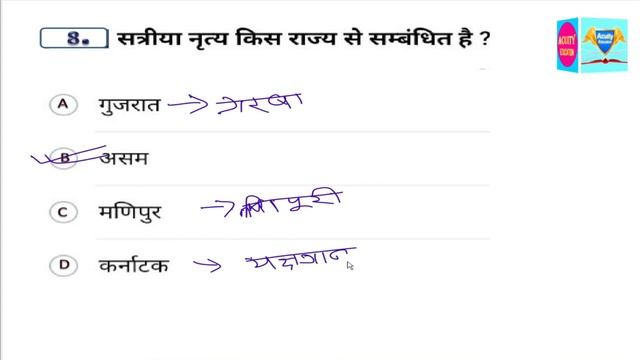 8. सत्रीया नृत्य किस राज्य से सम्बंधित है ?
ACUITY EDUCATION
Acuity Education
A गुजरात → गरबा
B असम
C मणिपुर →
D कर्नाटक → यक्षगान